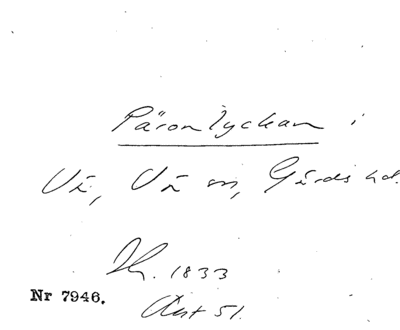 Päronlyckan i
Vä, Vä sn, Gärds hd.
Sk. 1833
Akt 51.
Nr 7946.